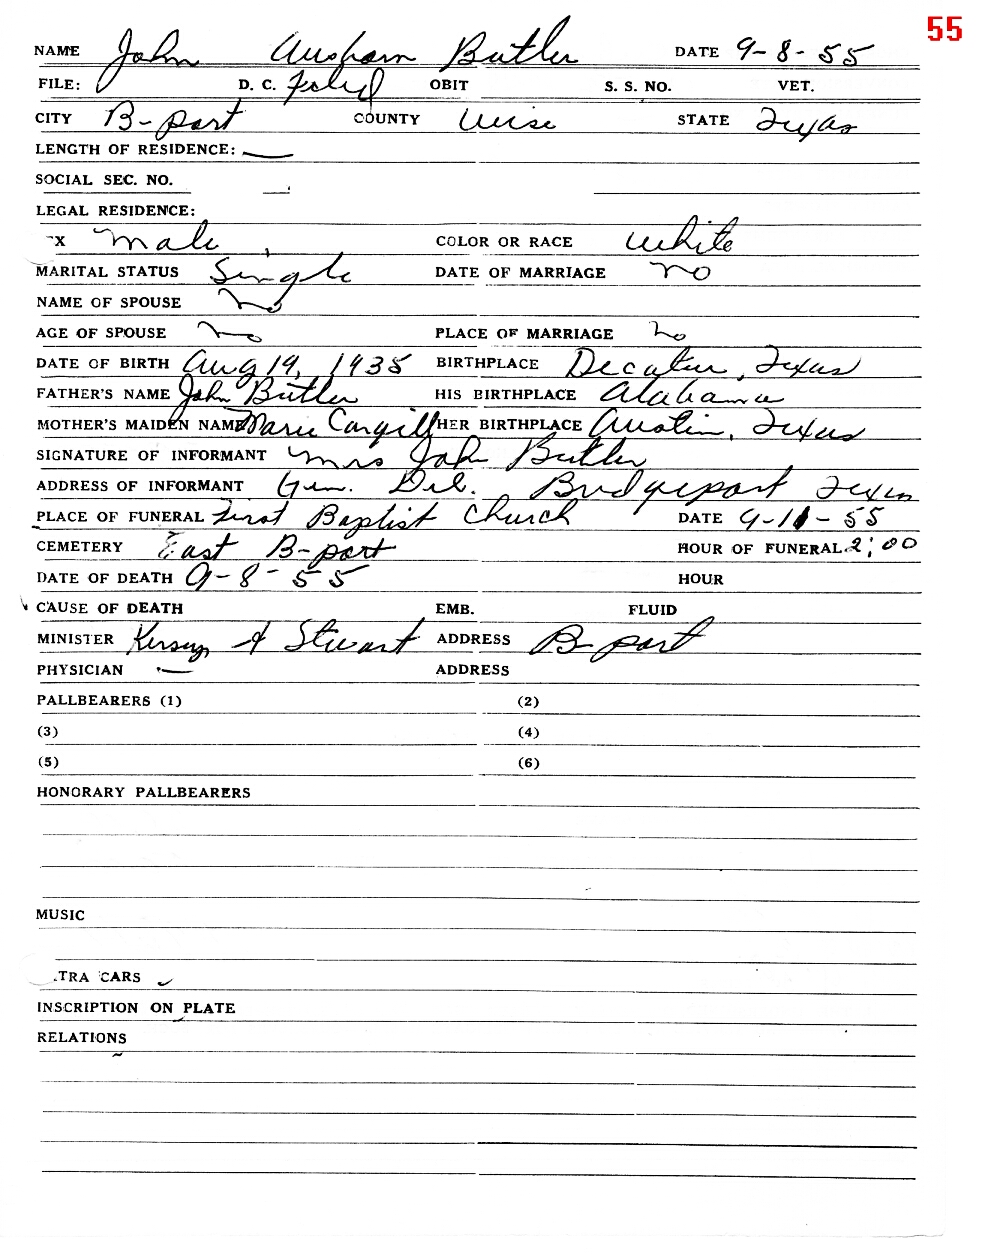 55
NAME John Ausham Butler DATE 9-8-55
FILE: D. C. Filed OBIT S. S. NO. VET.
CITY B-port COUNTY Wise STATE Texas
LENGTH OF RESIDENCE: —
SOCIAL SEC. NO. —
LEGAL RESIDENCE:
X male COLOR OR RACE white
MARITAL STATUS Single DATE OF MARRIAGE no
NAME OF SPOUSE No
AGE OF SPOUSE No PLACE OF MARRIAGE no
DATE OF BIRTH Aug 19, 1935 BIRTHPLACE Decatur, Texas
FATHER'S NAME John Butler HIS BIRTHPLACE Alabama
MOTHER'S MAIDEN NAME Marie Cargill HER BIRTHPLACE Austin, Texas
SIGNATURE OF INFORMANT Mrs John Butler
ADDRESS OF INFORMANT Gen. Del. Bridgeport Texas
PLACE OF FUNERAL First Baptist Church DATE 9-11-55
CEMETERY East B-port HOUR OF FUNERAL 2:00
DATE OF DEATH 9-8-55 HOUR
CAUSE OF DEATH EMB. FLUID
MINISTER & Stewart ADDRESS B-port
PHYSICIAN — ADDRESS
PALLBEARERS (1) (2)
(3) (4)
(5) (6)
HONORARY PALLBEARERS
MUSIC
TRA CARS
INSCRIPTION ON PLATE
RELATIONS